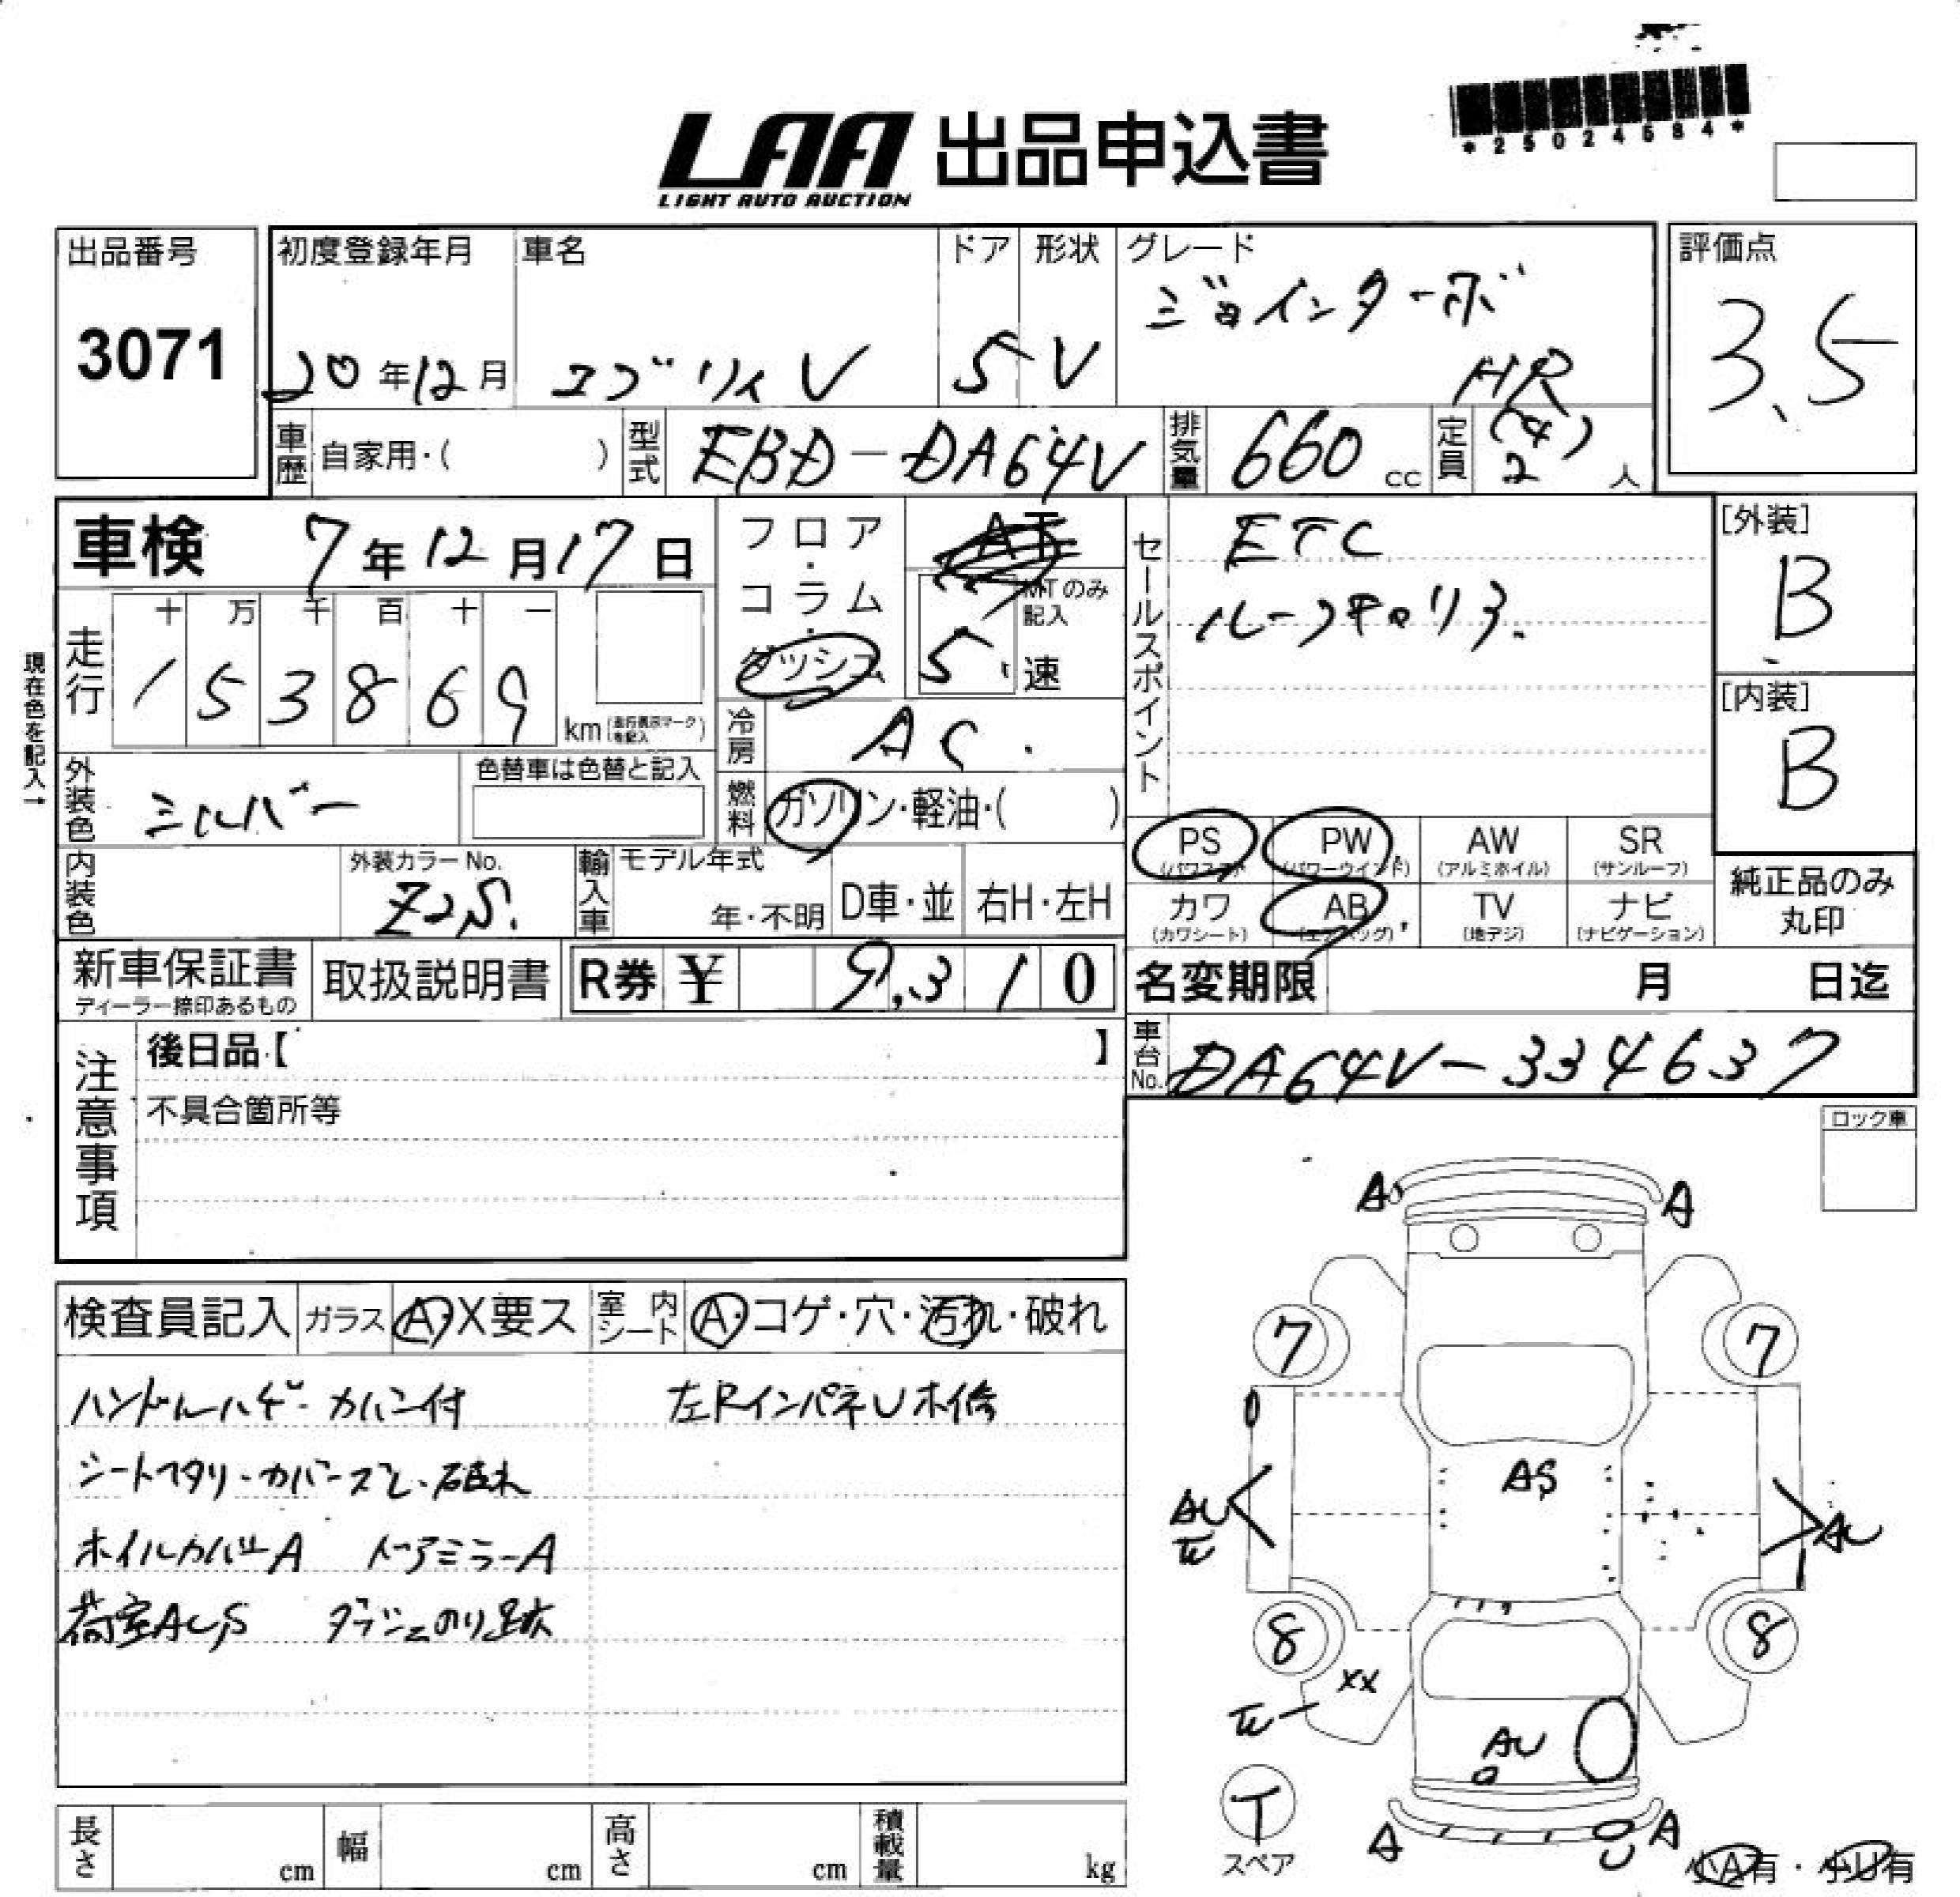 *25024584*
LAA 出品申込書
LIGHT AUTO AUCTION
出品番号
3071
初度登録年月
20年12月
車名
エブリィV
ドア
5
形状
V
グレード
ジョインターボ
HR
評価点
3.5
車歴 自家用・( )
型式 EBD-DA64V
排気量 660 cc
定員 (4) 2 人
車検 7年12月17日
フロア・コラム・ダッシュ
AT
MTのみ記入
5速
セールスポイント
ETC
ルーフキャリア
[外装]
B
[内装]
B
現在色を記入→
走行
十 万 千 百 十 一
1 5 3 8 6 9 km (走行表示マークを記入)
冷房 AC
外装色 シルバー
色替車は色替と記入
燃料 ガソリン・軽油・( )
PS (パワステ)
PW (パワーウインド)
AW (アルミホイル)
SR (サンルーフ)
カワ (カワシート)
AB (エアバッグ)
TV (地デジ)
ナビ (ナビゲーション)
純正品のみ
丸印
内装色
外装カラーNo.
Z2S
輸入車 モデル年式
年・不明
D車・並
右H・左H
新車保証書
ディーラー捺印あるもの
取扱説明書
R券 ¥ 9,310
名変期限 月 日迄
車台No. DA64V-334637
注意事項
後日品【 】
不具合箇所等
ロック車
検査員記入
ガラス A・X要ス
室内シート A・コゲ・穴・汚れ・破れ
ハンドルハゲ・カバー付
左RインパネU補修
シートヘタリ・カバースレ・破れ
ホイルカバーA ドアミラーA
荷室AUS ダッシュのり跡
A A
7 7
AS
AU
AU
8 8
XX
AU
T
スペア
A A
U
小A有・小U有
長さ cm
幅 cm
高さ cm
積載量 kg